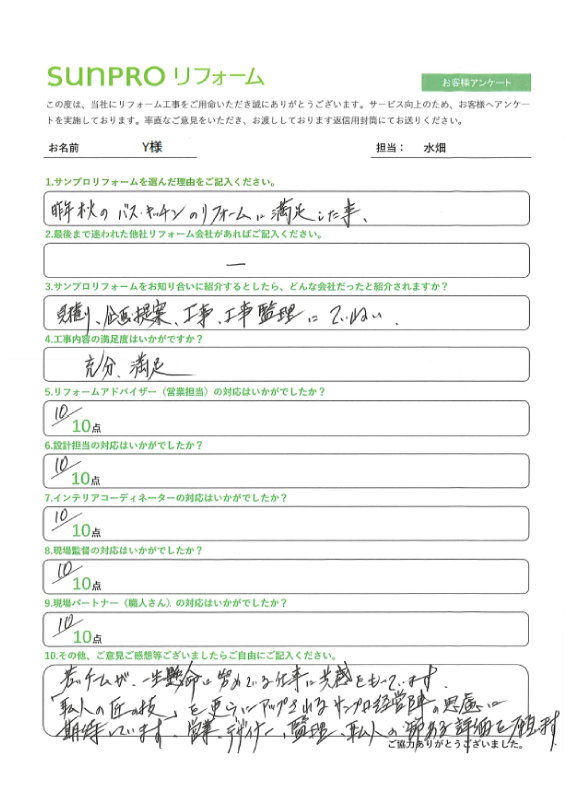 SUNPRO リフォーム
お客様アンケート
この度は、当社にリフォーム工事をご用命いただき誠にありがとうございます。サービス向上のため、お客様へアンケー
トを実施しております。率直なご意見をいただき、お渡ししております返信用封筒にてお送りください。
お名前 Y様 担当： 水畑
1.サンプロリフォームを選んだ理由をご記入ください。
昨年秋の バス・キッチンのリフォームに満足した事、
2.最後まで迷われた他社リフォーム会社があればご記入ください。
—
3.サンプロリフォームをお知り合いに紹介するとしたら、どんな会社だったと紹介されますか？
見積り、企画提案、工事、工事監理にていねい．
4.工事内容の満足度はいかがですか？
充分、満足
5.リフォームアドバイザー（営業担当）の対応はいかがでしたか？
10/10点
6.設計担当の対応はいかがでしたか？
10/10点
7.インテリアコーディネーターの対応はいかがでしたか？
10/10点
8.現場監督の対応はいかがでしたか？
10/10点
9.現場パートナー（職人さん）の対応はいかがでしたか？
10/10点
10.その他、ご意見ご感想等ございましたらご自由にご記入ください。
チームが一生懸命に努めている仕事に共感をもっています．
「職人の匠の技」を更にアップされるサンプロ経営陣の
期待しています．営業、デザイナー、監理、職人の 評価を願います
ご協力ありがとうございました。